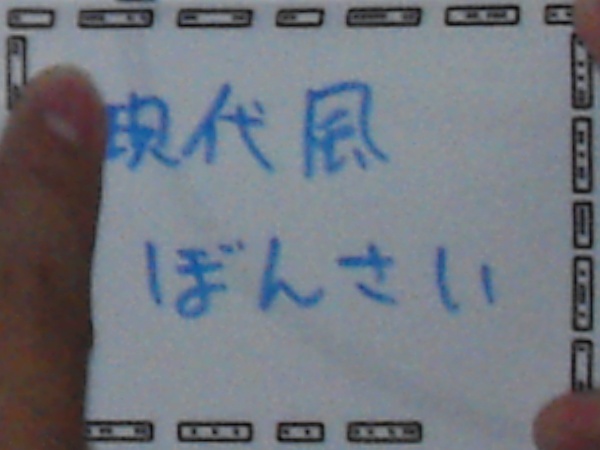 現代風
ぼんさい